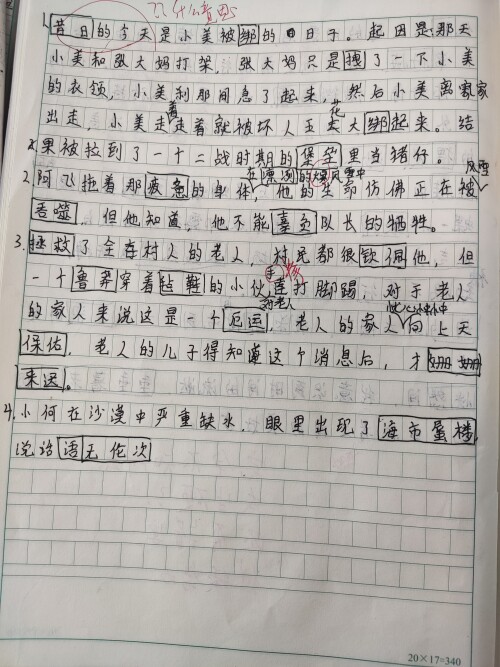 ??什么意思
1.昔日的今天是小美被绑的日子。起因是:那天
小美和张大妈打架，张大妈只是拽了一下小美
的衣领，小美刹那间急了起来，然后小美离家
出走，小美走着走着就被坏人五花大绑起来。结
果被拉到了一个二战时期的堡垒里当猪仔。
在凛冽的风雪中
风雪
2.阿飞拖着那疲惫的身体，他的生命仿佛正在被
吞噬，但他知道，他不能辜负队长的牺牲。
3.拯救了全在村人的老人，村民都很钦佩他，但
一个鲁莽穿着钻鞋的小伙手打脚踢，对于老人
对老人
的家人来说这是一个厄运，老人的家人向上天
保佑，老人的儿子得知道这个消息后，才姗姗
来迟。
4.小何在沙漠中严重缺水，眼里出现了海市蜃楼，
说话语无伦次
20×17=340